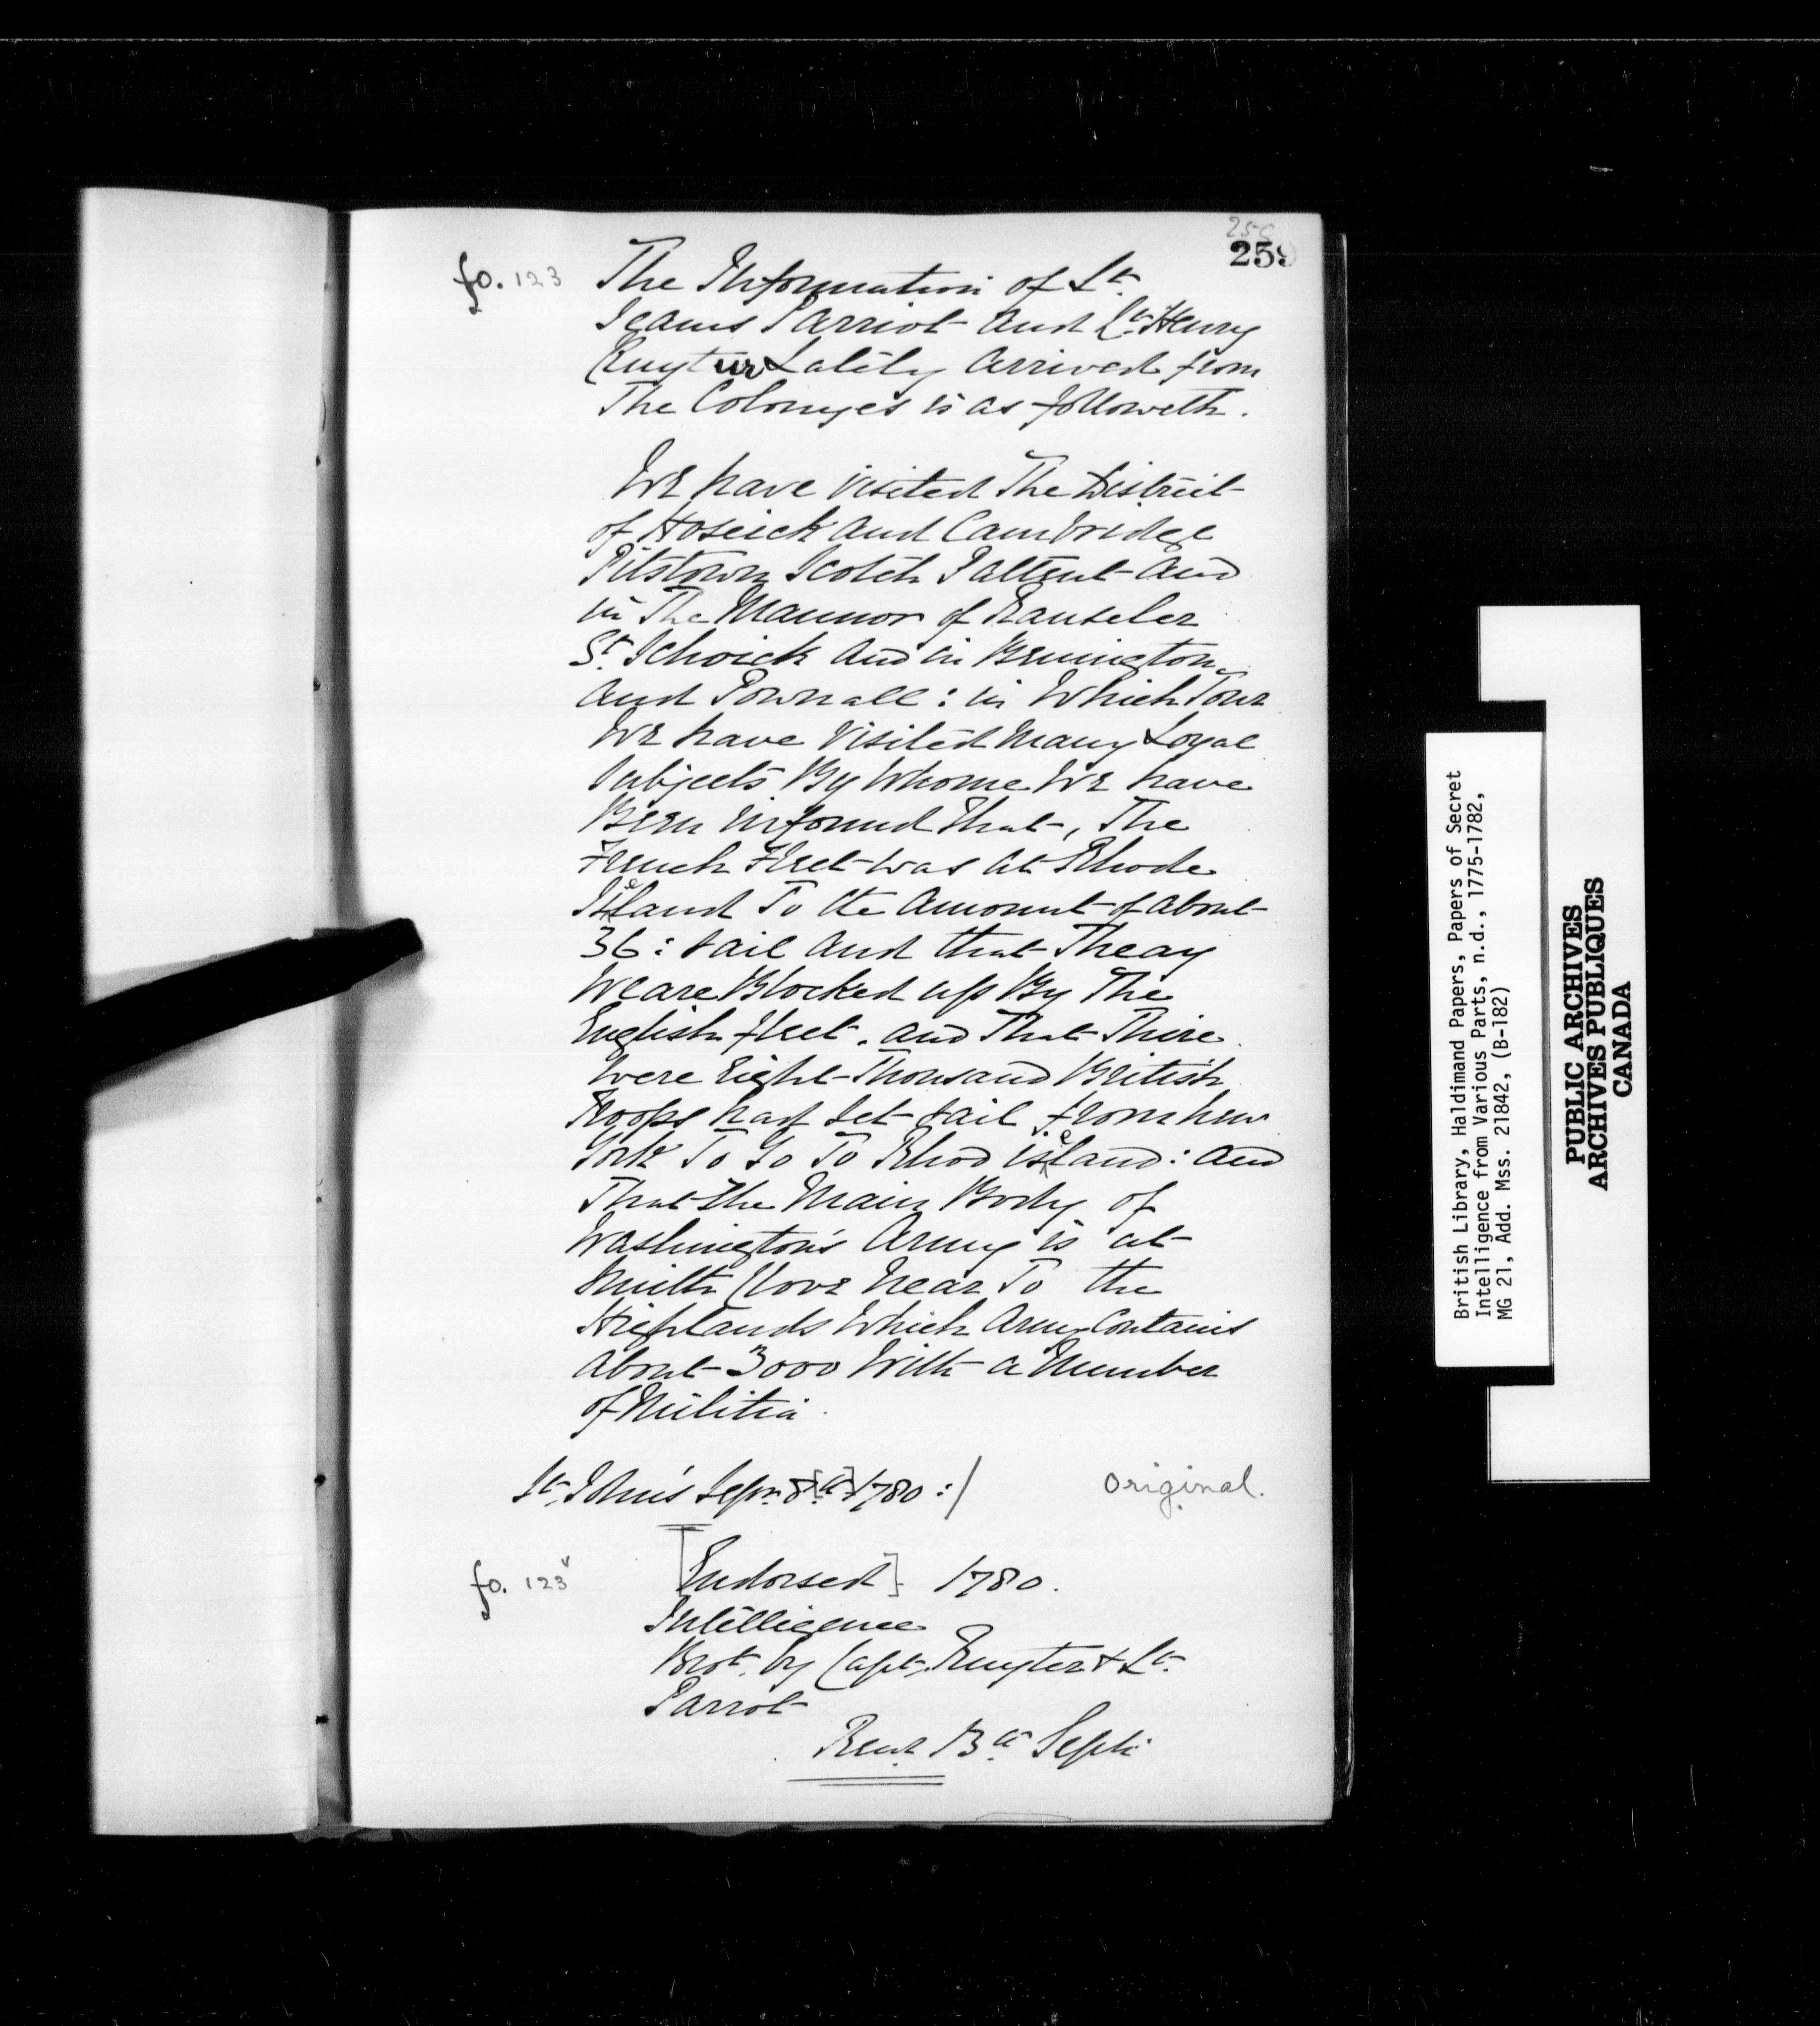 255
259
fo. 123 The Information of Lt.
Jeams Parriot and Lt. Henry
Ruyter Lately Arrived from
The Colonyes is as followeth.
We have Visited The District
of Hoseick And Cambridge
Pitstown Scotch Pattent And
in The Mannor of Ranseler
St. Schoick And in Benington
And Pownall: in Which Tour
We have Visited Many Loyal
Subjects By Whome We have
Been informd that, The
French Fleet was at Rhode
Iseland To the Amount of about
36: Sail And that Theay
Weare Blocked up By The
English fleet. and That Thire
Were Eight Thousand British
Troops had Set Sail from new
York To Go To Rhod iseland: and
That the Main Body of
Washington's Army is at
Smiths Clove Near To the
Highlands Which Army Contains
about 3000 With a Number
of Militia.
St. John's Sepr. 8[th] 1780 :/ Original.
fo. 123v [Endorsed] 1780.
Intelligence
Brot. by Capt. Ruyter & Lt.
Parrot
Recd. 13th Septr.
British Library, Haldimand Papers, Papers of Secret
Intelligence from Various Parts, n.d., 1775-1782,
MG 21, Add. Mss. 21842, (B-182)
PUBLIC ARCHIVES
ARCHIVES PUBLIQUES
CANADA